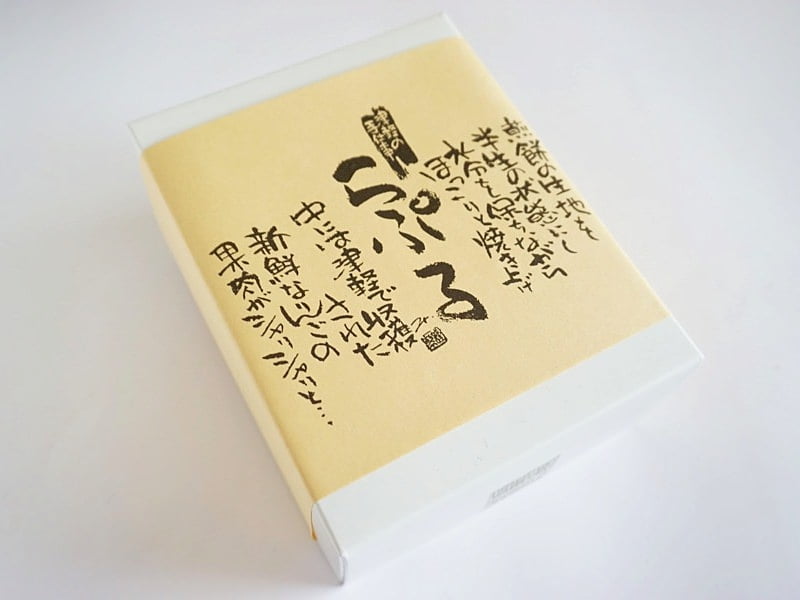 煎餅の生地を
半生の状態にし
水分をし保ちながら
ほっこりと焼き上げ
津軽の
手仕事
らぷる
中には津軽で収穫
された
新鮮なりんごの
果肉がシャリシャリと…